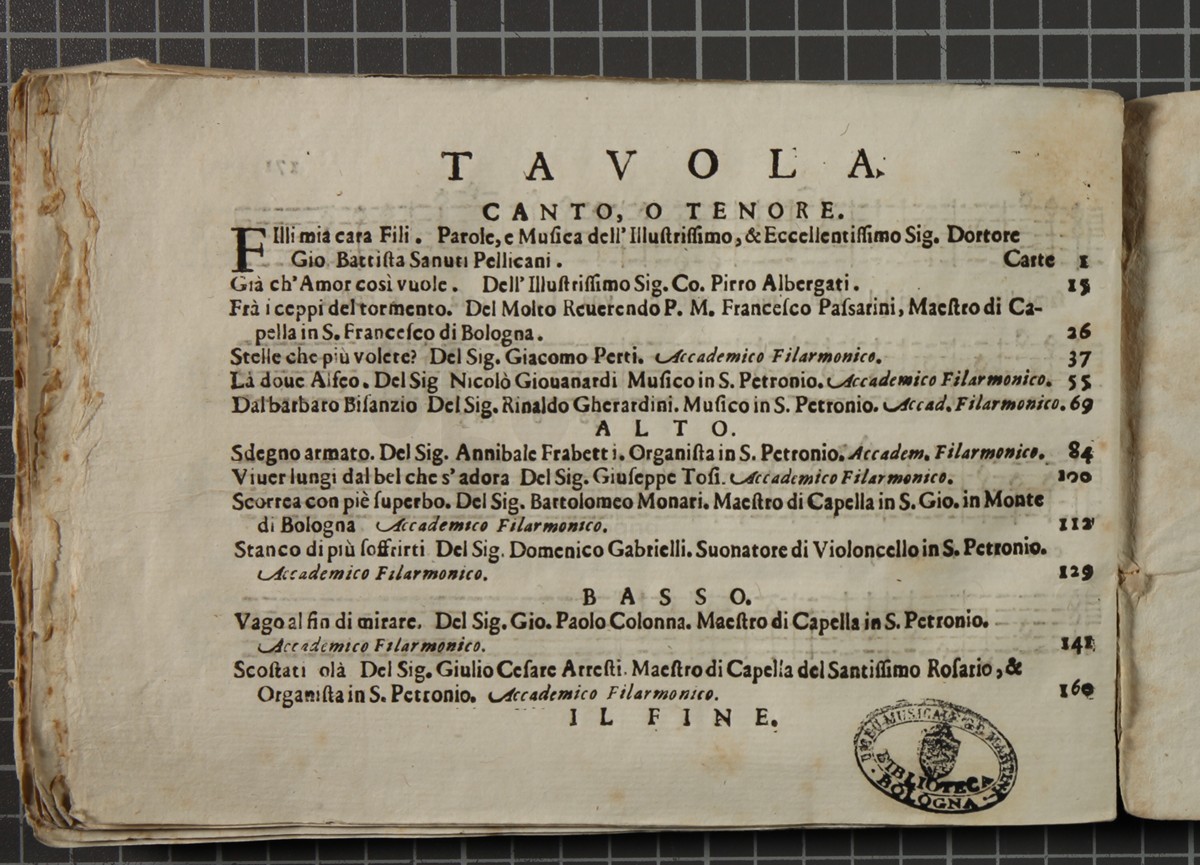 TAVOLA.
CANTO, O TENORE.
FIlli mia cara Fili. Parole, e Muſica dell'Illuſtriſſimo, & Eccellentiſſimo Sig. Dottore
Gio Battiſta Sanuti Pellicani. Carte 1
Già ch'Amor così vuole. Dell'Illuſtriſſimo Sig. Co. Pirro Albergati. 15
Frà i ceppi del tormento. Del Molto Reuerendo P. M. Franceſco Paſsarini, Maeſtro di Ca-
pella in S. Franceſco di Bologna. 26
Stelle che più volete? Del Sig. Giacomo Perti. Accademico Filarmonico. 37
Là doue Alfeo. Del Sig Nicolò Giouanardi Muſico in S. Petronio. Accademico Filarmonico. 55
Dal barbaro Biſanzio Del Sig. Rinaldo Gherardini. Muſico in S. Petronio. Accad. Filarmonico. 69
ALTO.
Sdegno armato. Del Sig. Annibale Frabetti. Organiſta in S. Petronio. Accadem. Filarmonico. 84
Viuer lungi dal bel che s'adora Del Sig. Giuſeppe Toſi. Accademico Filarmonico. 100
Scorrea con piè ſuperbo. Del Sig. Bartolomeo Monari. Maeſtro di Capella in S. Gio. in Monte
di Bologna Accademico Filarmonico. 112
Stanco di più ſoffrirti Del Sig. Domenico Gabrielli. Suonatore di Violoncello in S. Petronio.
Accademico Filarmonico. 129
BASSO.
Vago al fin di mirare. Del Sig. Gio. Paolo Colonna. Maeſtro di Capella in S. Petronio.
Accademico Filarmonico. 141
Scoſtati olà Del Sig. Giulio Ceſare Arreſti. Maeſtro di Capella del Santiſſimo Roſario, &
Organiſta in S. Petronio. Accademico Filarmonico. 160
IL FINE.
MUSICALE
MARTINI
BIBLIOTECA
BOLOGNA